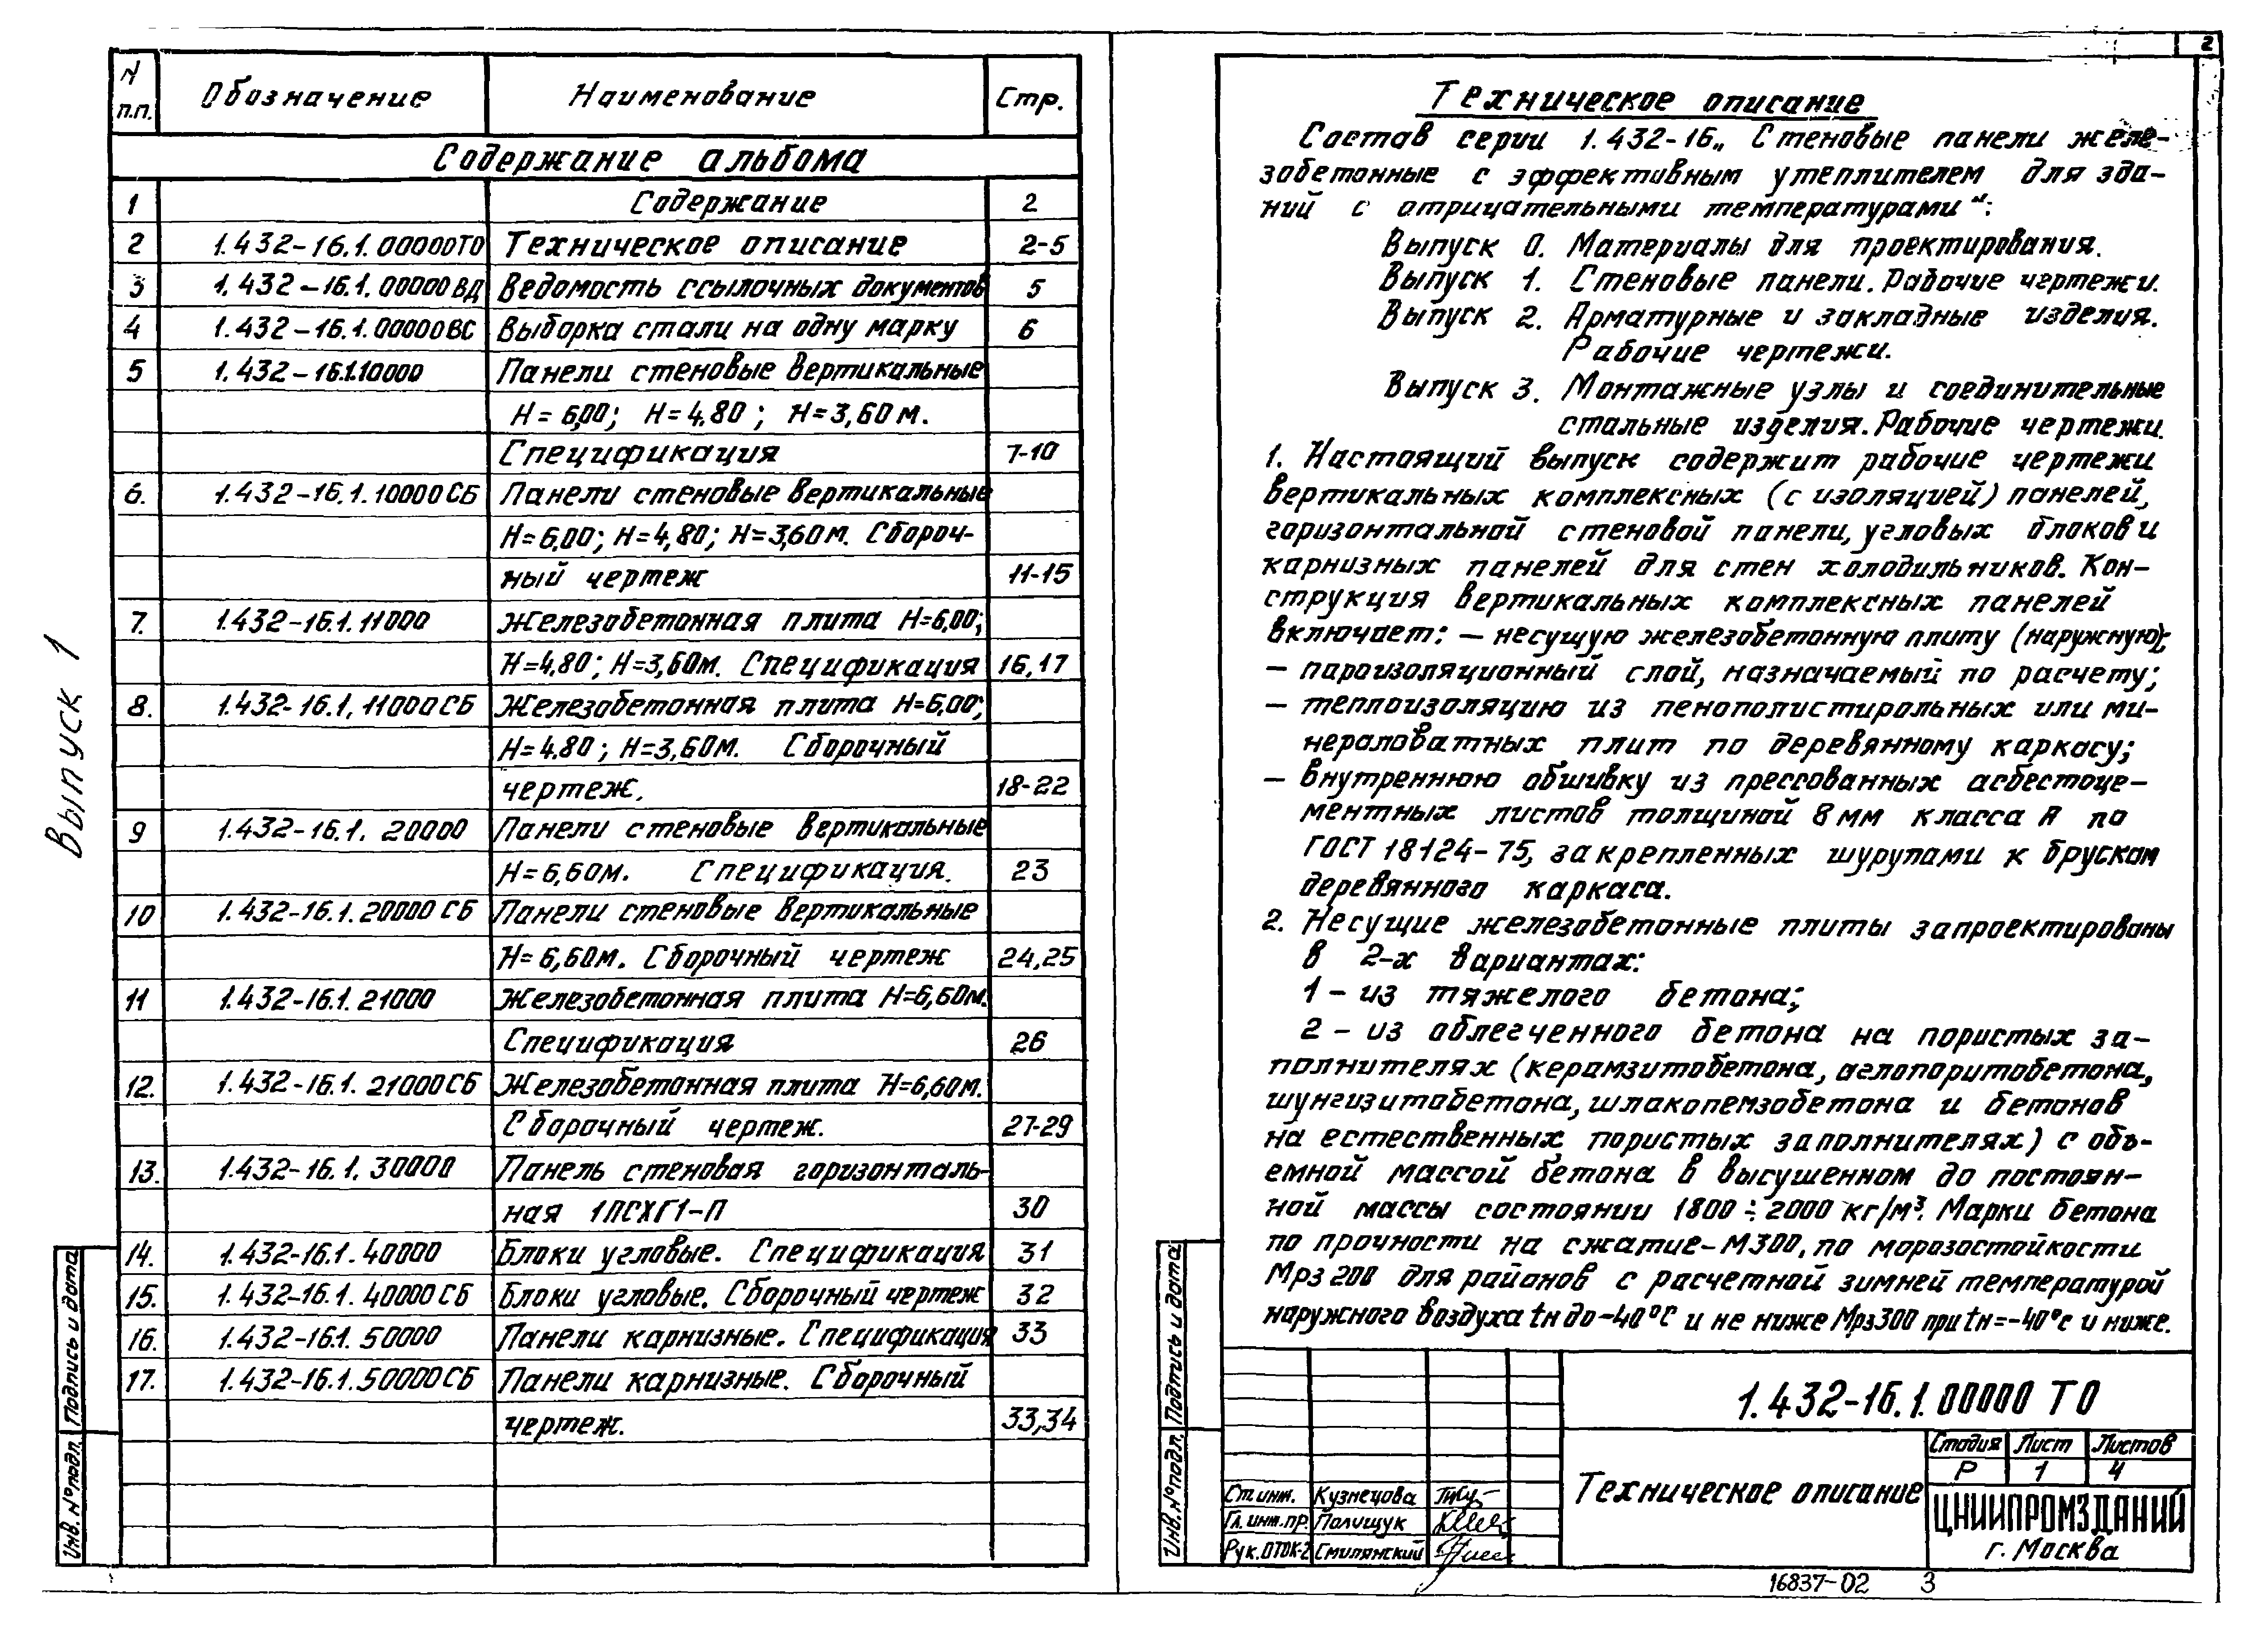 Выпуск 1
N п.п. Обозначение Наименование Стр.
Содержание альбома
1 Содержание 2
2 1.432-16.1.00000ТО Техническое описание 2-5
3 1.432-16.1.00000ВД Ведомость ссылочных документов 5
4 1.432-16.1.00000ВС Выборка стали на одну марку 6
5 1.432-16.1.10000 Панели стеновые вертикальные
Н=6,00; Н=4.80; Н=3,60м.
Спецификация 7-10
6. 1.432-16.1.10000СБ Панели стеновые вертикальные
Н=6,00; Н=4,80; Н=3,60м. Сбороч-
ный чертеж 11-15
7. 1.432-16.1.11000 Железобетонная плита Н=6,00;
Н=4,80; Н=3,60м. Спецификация 16,17
8. 1.432-16.1.11000СБ Железобетонная плита Н=6,00;
Н=4.80; Н=3,60м. Сборочный
чертеж. 18-22
9 1.432-16.1.20000 Панели стеновые вертикальные
Н=6,60м. Спецификация. 23
10 1.432-16.1.20000СБ Панели стеновые вертикальные
Н=6,60м. Сборочный чертеж 24,25
11 1.432-16.1.21000 Железобетонная плита Н=6,60м.
Спецификация 26
12. 1.432-16.1.21000СБ Железобетонная плита Н=6,60м.
Сборочный чертеж. 27-29
13. 1.432-16.1.30000 Панель стеновая горизонталь-
ная 1ПСХГ1-П 30
14. 1.432-16.1.40000 Блоки угловые. Спецификация 31
15. 1.432-16.1.40000СБ Блоки угловые. Сборочный чертеж 32
16. 1.432-16.1.50000 Панели карнизные. Спецификация 33
17. 1.432-16.1.50000СБ Панели карнизные. Сборочный
чертеж. 33,34
Инв.№подл. Подпись и дата
2
Техническое описание
Состав серии 1.432-16 „Стеновые панели желе-
зобетонные с эффективным утеплителем для зда-
ний с отрицательными температурами“:
Выпуск 0. Материалы для проектирования.
Выпуск 1. Стеновые панели. Рабочие чертежи.
Выпуск 2. Арматурные и закладные изделия.
Рабочие чертежи.
Выпуск 3. Монтажные узлы и соединительные
стальные изделия. Рабочие чертежи.
1. Настоящий выпуск содержит рабочие чертежи
вертикальных комплексных (с изоляцией) панелей,
горизонтальной стеновой панели, угловых блоков и
карнизных панелей для стен холодильников. Кон-
струкция вертикальных комплексных панелей
включает: – несущую железобетонную плиту (наружную);
– пароизоляционный слой, назначаемый по расчету;
– теплоизоляцию из пенополистирольных или ми-
нераловатных плит по деревянному каркасу;
– внутреннюю обшивку из прессованных асбестоце-
ментных листов толщиной 8мм класса А по
ГОСТ 18124-75, закрепленных шурупами к брускам
деревянного каркаса.
2. Несущие железобетонные плиты запроектированы
в 2-х вариантах:
1 – из тяжелого бетона;
2 – из облегченного бетона на пористых за-
полнителях (керамзитобетона, аглопоритобетона,
шунгизитобетона, шлакопемзобетона и бетонов
на естественных пористых заполнителях) с объ-
емной массой бетона в высушенном до постоян-
ной массы состоянии 1800÷2000 кг/м³. Марки бетона
по прочности на сжатие-М300, по морозостойкости
Мрз 200 для районов с расчетной зимней температурой
наружного воздуха tн до-40°С и не ниже Мрз300 при tн=-40°с и ниже.
Инв.№подл. Подпись и дата
1.432-16.1.00000 ТО
Техническое описание
Стадия Лист Листов
Р 1 4
Ст.инж. Кузнецова
Гл.инж.пр. Полищук
Рук.ОТОК-2 Смилянский
ЦНИИПРОМЗДАНИЙ
г. Москва
16837-02 3